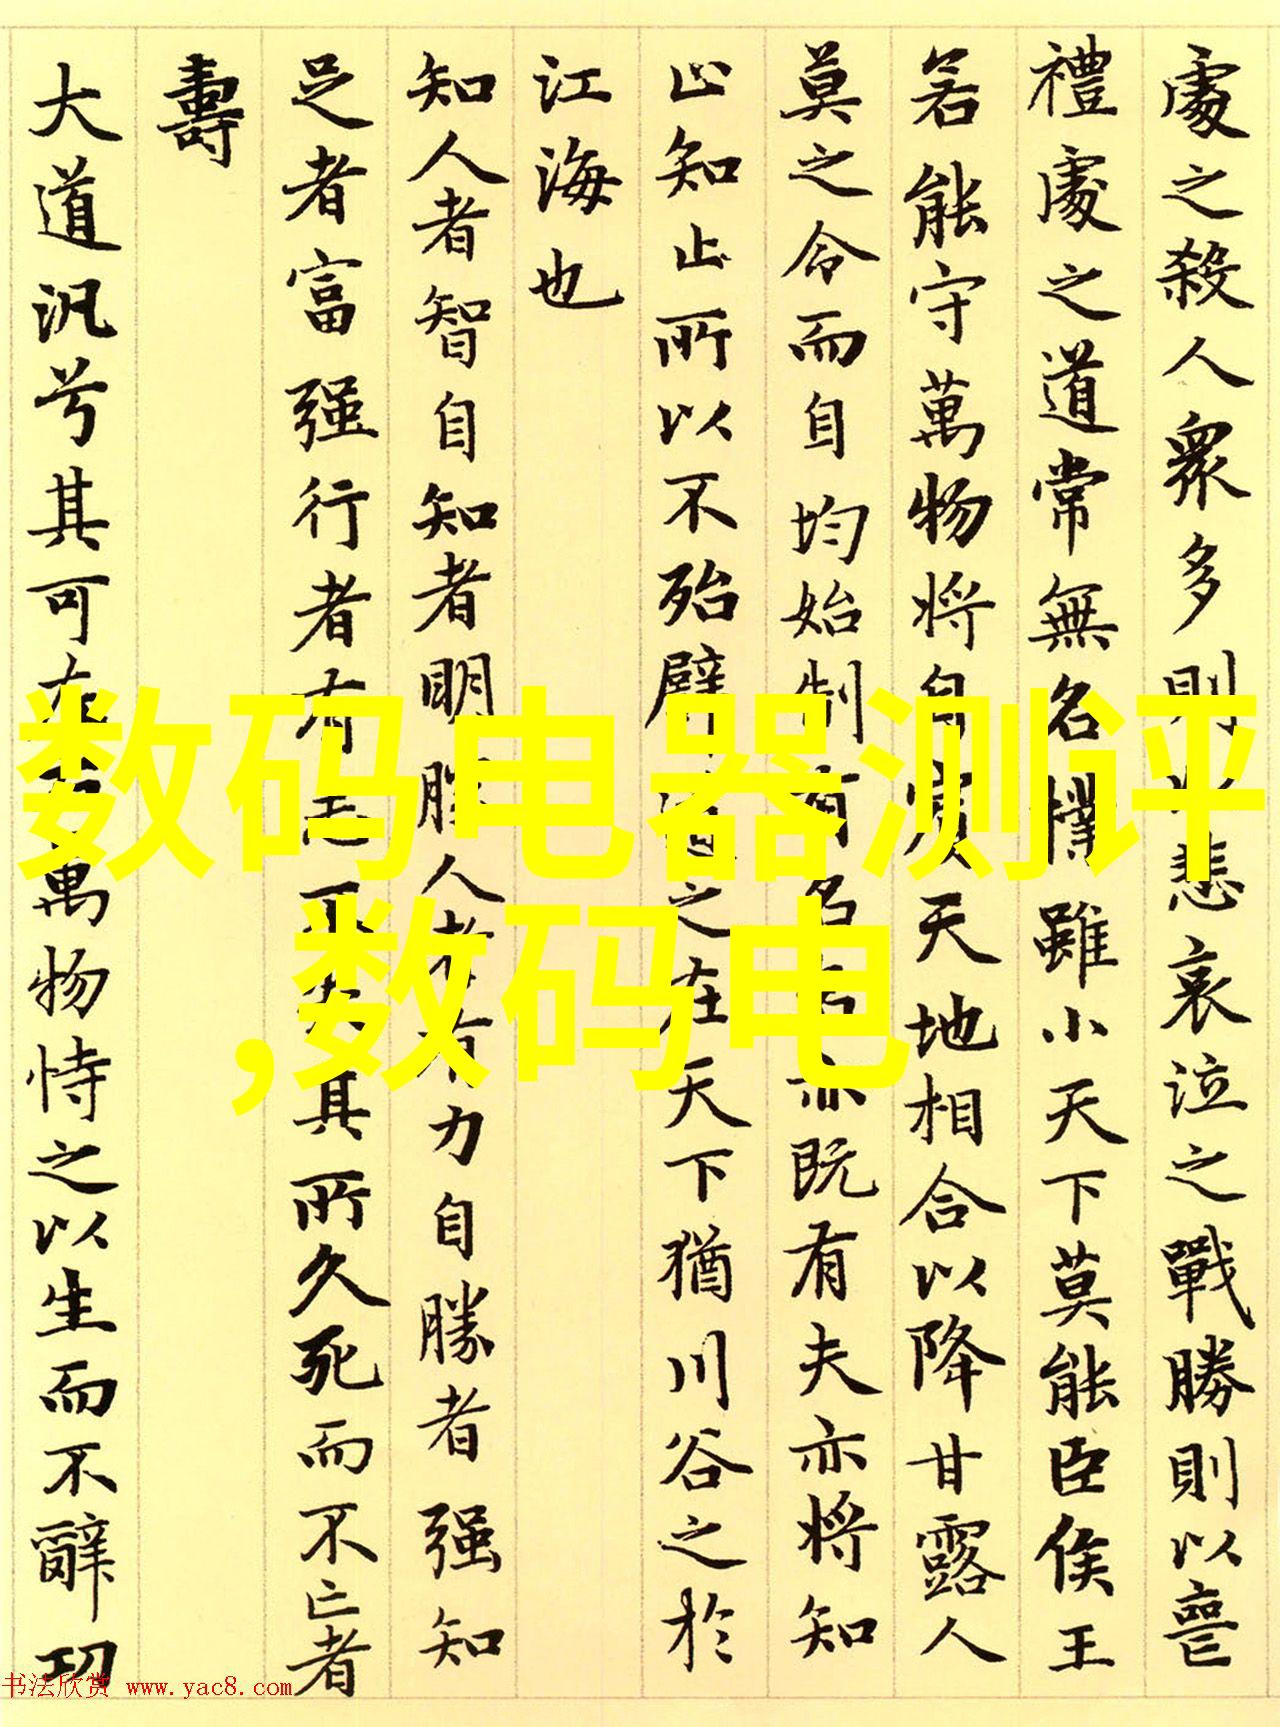 處之殺人衆多則以悲哀泣之戰勝則以喪
禮處之道常無名樸雖小天下莫能臣侯王
若能守萬物將自賓天地相合以降甘露人
莫之令而自均始制有名名亦既有夫亦將知
止知止所以不殆譬道之在天下猶川谷之於
江海也
知人者智自知者明勝人者有力自勝者强知
足者富强行者有志不失其所久死而不亡者
壽
大道汎兮其可左右萬物恃之以生而不辭功
数码电器测评
,数码电
书法欣赏 www.yac8.com